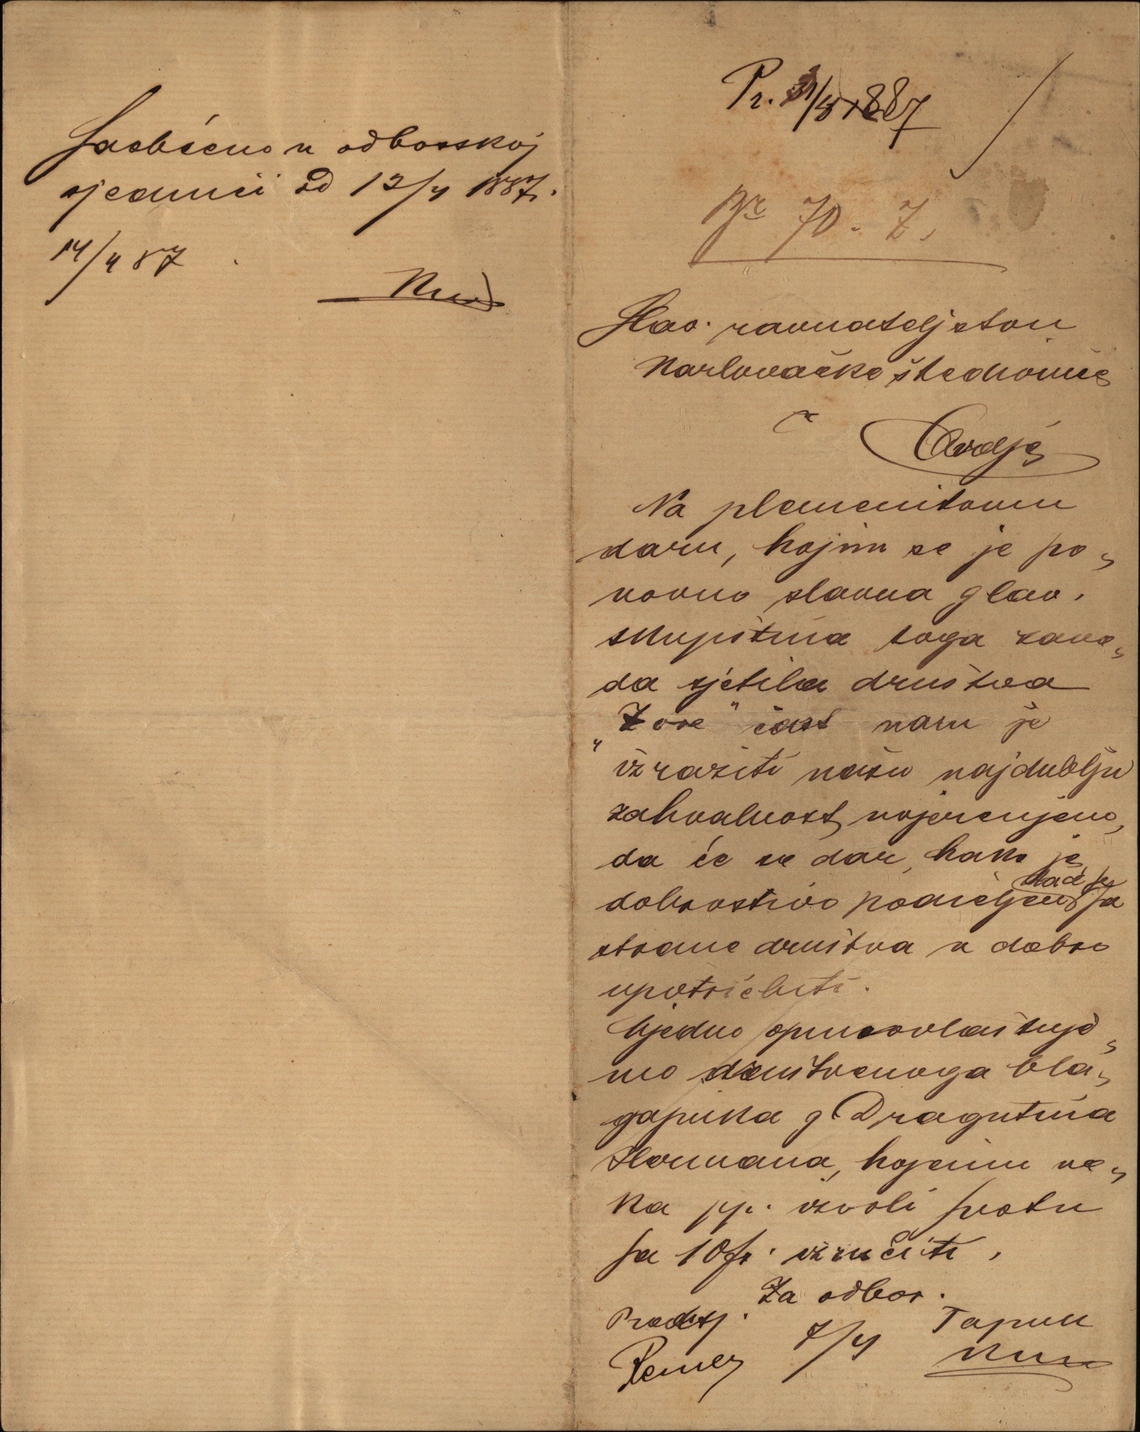 Saobćeno u odborskoj
sjednici od 12/4 1887.
14/4 87
Pr. 31/3 1887
Br 70. Z.
Slav. ravnateljstvu
Karlovačke štedionice
Ovdje
Na plemenitomu
daru, kojim se je po„
novno slavna glav.
skupština toga zavo„
da sjetila društva
„Zore" čast nam je
izraziti našu najdublju
zahvalnost, uvjerenjeno,
da će se dar, kako je
dobrostivo podieljen sa
strane društva u dobro
upotriebiti.
Ujedno opunovlašćuje„
mo društvenoga bla„
gajnika g Dragutina
kojemu ne„
ka pp. izvoli svotu
sa 10 fr. izručiti.
Za odbor.
Predsj. 7/4 Tajnik